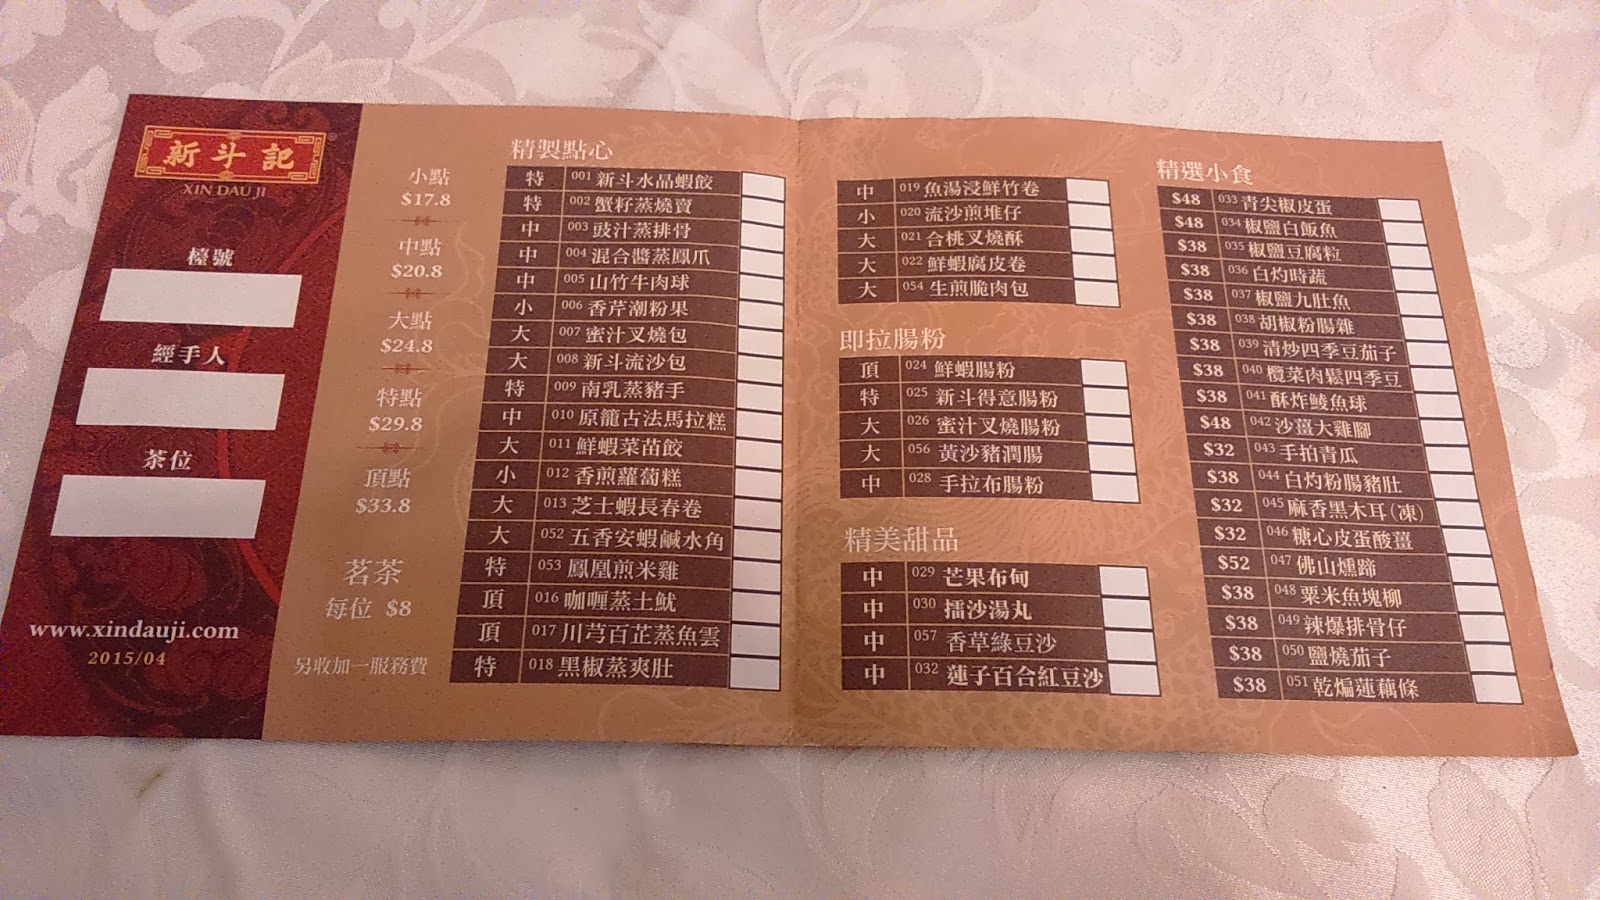 新斗記
XIN DAU JI
檯號
經手人
茶位
www.xindauji.com
2015/04
小點
$17.8
中點
$20.8
大點
$24.8
特點
$29.8
頂點
$33.8
茗茶
每位 $8
另收加一服務費
精製點心
特 001 新斗水晶蝦餃
特 002 蟹籽蒸燒賣
中 003 豉汁蒸排骨
中 004 混合醬蒸鳳爪
中 005 山竹牛肉球
小 006 香芹潮粉果
大 007 蜜汁叉燒包
大 008 新斗流沙包
特 009 南乳蒸豬手
中 010 原籠古法馬拉糕
大 011 鮮蝦菜苗餃
小 012 香煎蘿蔔糕
大 013 芝士蝦長春卷
大 052 五香安蝦鹹水角
特 053 鳳凰煎米雞
頂 016 咖喱蒸土魷
頂 017 川芎百芷蒸魚雲
特 018 黑椒蒸爽肚
中 019 魚湯浸鮮竹卷
小 020 流沙煎堆仔
大 021 合桃叉燒酥
大 022 鮮蝦腐皮卷
大 054 生煎脆肉包
即拉腸粉
頂 024 鮮蝦腸粉
特 025 新斗得意腸粉
大 026 蜜汁叉燒腸粉
大 056 黃沙豬潤腸
中 028 手拉布腸粉
精美甜品
中 029 芒果布甸
中 030 擂沙湯丸
中 057 香草綠豆沙
中 032 蓮子百合紅豆沙
精選小食
$48 033 青尖椒皮蛋
$48 034 椒鹽白飯魚
$38 035 椒鹽豆腐粒
$38 036 白灼時蔬
$38 037 椒鹽九肚魚
$38 038 胡椒粉腸雜
$38 039 清炒四季豆茄子
$38 040 欖菜肉鬆四季豆
$38 041 酥炸鯪魚球
$48 042 沙薑大雞腳
$32 043 手拍青瓜
$38 044 白灼粉腸豬肚
$32 045 麻香黑木耳(凍)
$32 046 糖心皮蛋酸薑
$52 047 佛山燻蹄
$38 048 粟米魚塊柳
$38 049 辣爆排骨仔
$38 050 鹽燒茄子
$38 051 乾煸蓮藕條